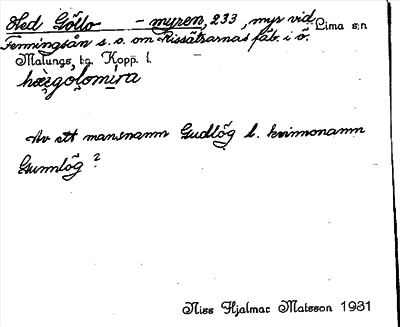 Hed Göllo - myren, 233, myr vid Lima s:n
Fenningsån s. o. om Rissätrarnas fäb. i ö.
Malungs, tg. Kopp. l.
hægolomira
Av ett mansnamn Gudlög l. kvinnonamn
Gunnlög ?
Niss Hjalmar Matsson 1931